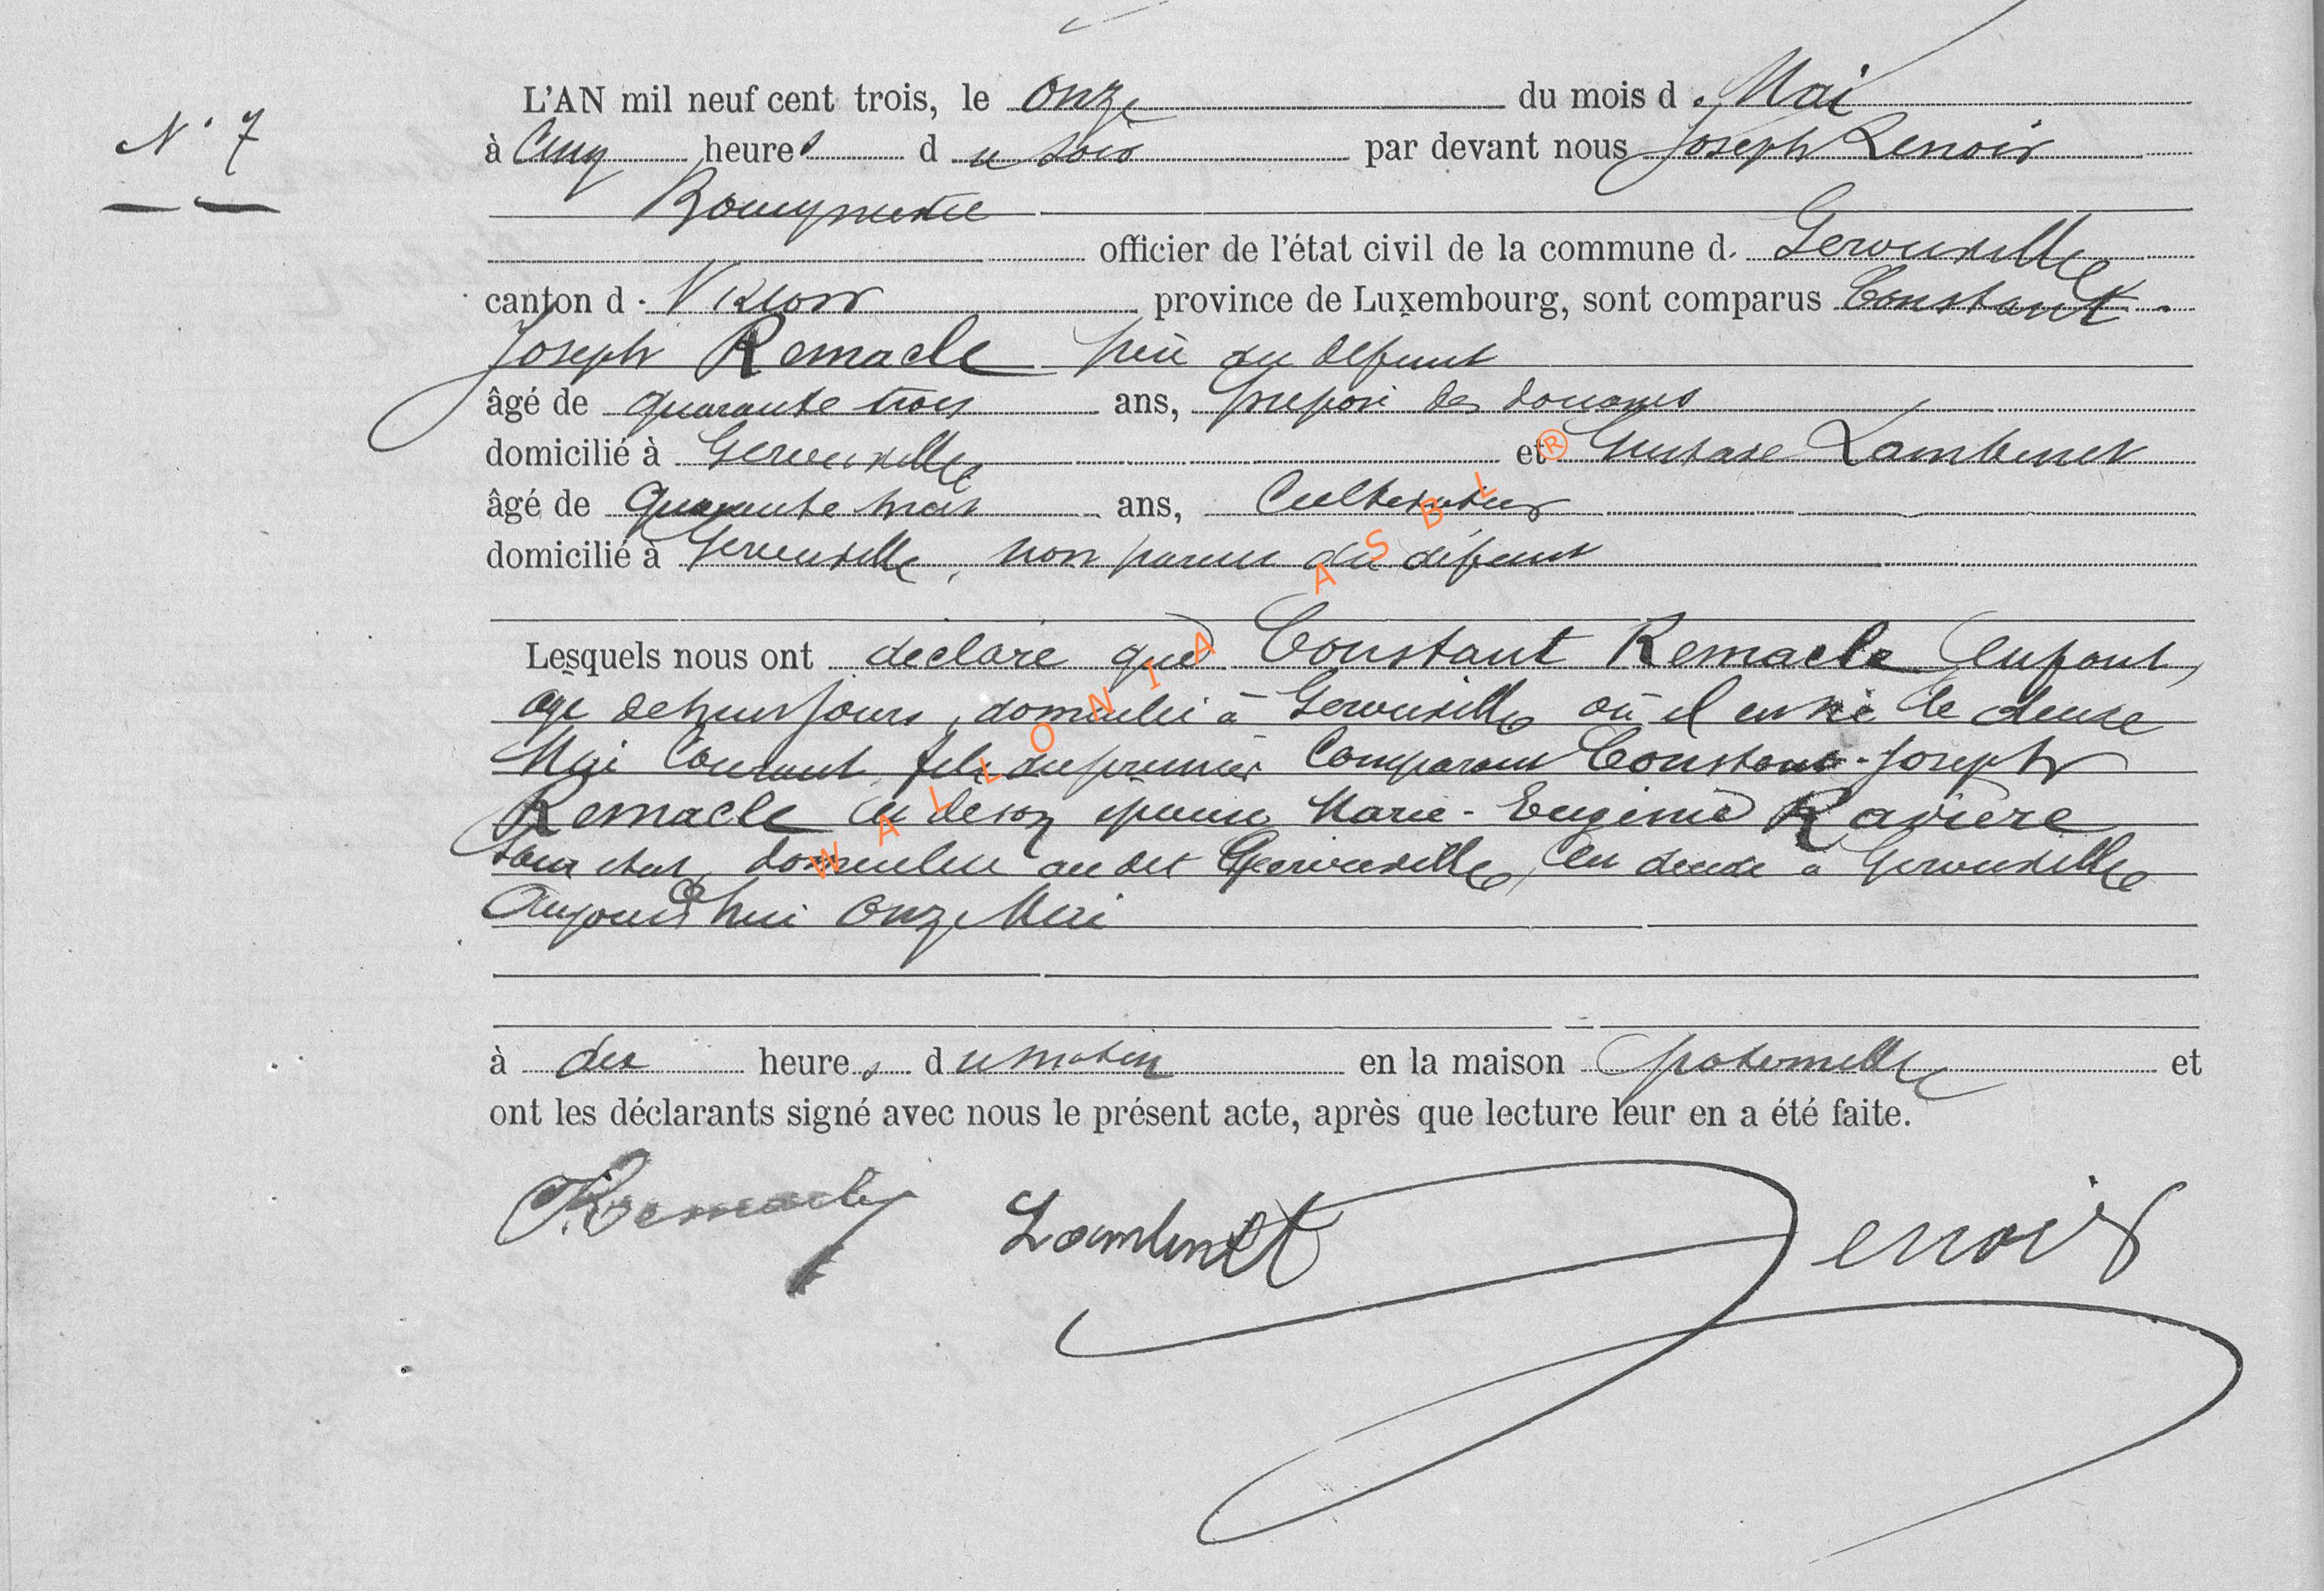 N° 7
L'AN mil neuf cent trois, le onze du mois d. Mai
à Cinq heures du soir par devant nous Joseph Lenoir
Bourgmestre
officier de l'état civil de la commune d. Gerouville
canton d. Virton province de Luxembourg, sont comparus Constant
Joseph Remacle père du défunt
âgé de quarante trois ans, préposé des douanes
domicilié à Gerouville et Gustave Lambinet
âgé de quarante trois ans, Cultivateur
domicilié à Gerouville, non parent du défunt
Lesquels nous ont déclaré que Constant Remacle enfant,
agé de huit jours, domicilié à Gerouville où il est né le deux
Mai Courant, fils du premier Comparant Constant-Joseph
Remacle et de son épouse Marie-Eugénie Ravière
sans état, domiciliée au dit Gerouville, est décédé à Gerouville
Aujourd'hui onze Mai
à dix heures du matin en la maison paternelle et
ont les déclarants signé avec nous le présent acte, après que lecture leur en a été faite.
Remacle Lambinet Lenoir
WALLONIA ASBL ®